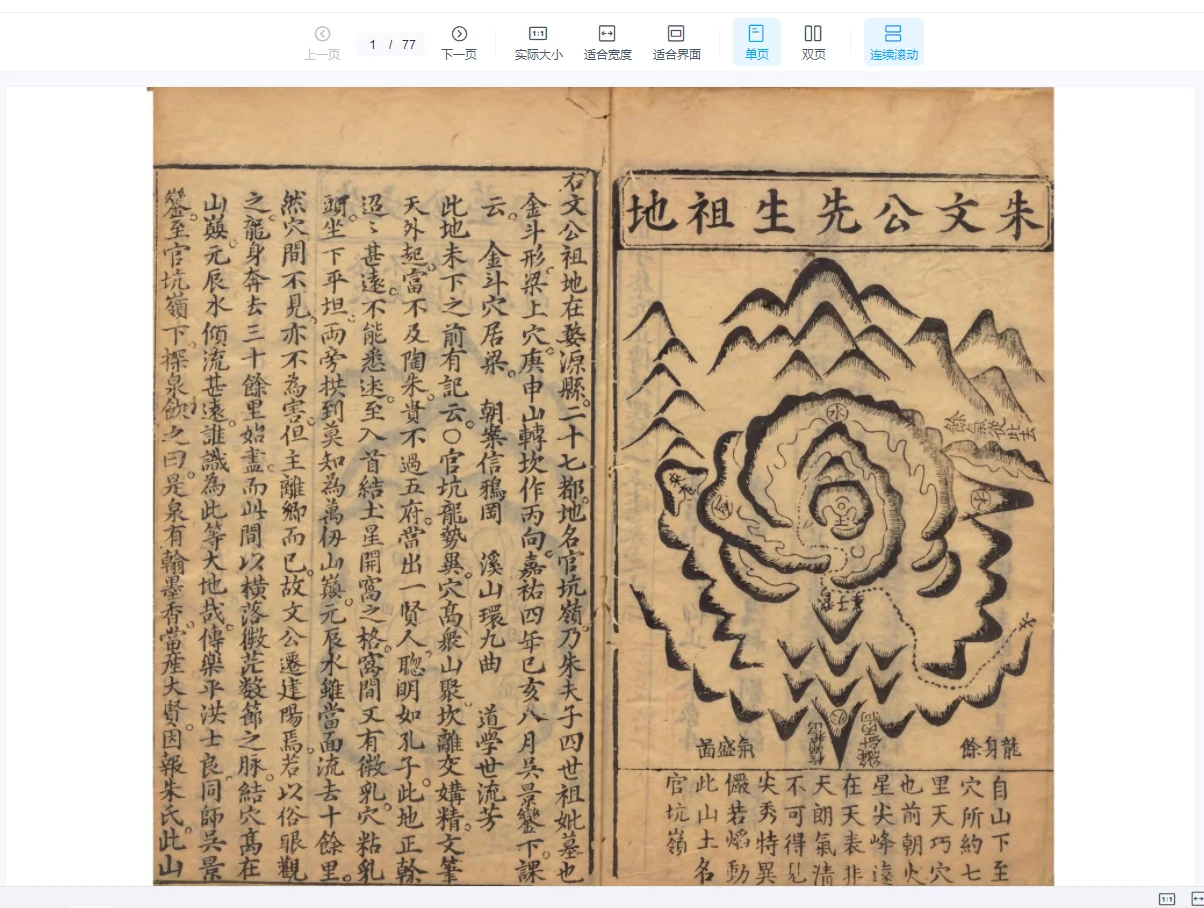 上一页
1 / 77
下一页
实际大小
适合宽度
适合界面
单页
双页
连续滚动
朱文公先生祖地
水
金
土
木
火
餘氣從此去
龍身餘
氣盛面
自山下至
穴所約七
里天巧穴
也前朝火
星尖峰遠
在天表非
天朗氣清
不可得見
尖秀特異
儼若焰動
此山土名
官坑嶺
右文公祖地在婺源縣二十七都地名官坑嶺乃朱夫子四世祖妣墓也
金斗形梁上穴庚申山轉坎作丙向嘉祐四年己亥八月吳景鸞下課
云 金斗穴居梁 朝案信鴉岡 溪山環九曲 道學世流芳
此地未下之前有記云○官坑龍勢異穴高衆山聚坎離交媾精文筆
天外起富不及陶朱貴不過五府當出一賢人聰明如孔子此地正幹
迢〻甚遠不能悉述至入首結土星開窩之格窩間又有微乳穴粘乳
頭坐下平坦兩旁拱到莫知為萬仞山巔元辰水雖當面流去十餘里
然穴間不見亦不為害但主離鄉而已故文公遷建陽焉若以俗眼觀
之龍身奔去三十餘里始盡而此間以橫落微茫数節之脉結穴高在
山巔元辰水傾流甚遠誰識為此等大地哉傳樂平洪士良同師吳景
鸞至官坑嶺下探泉飲之曰是泉有翰墨香當産大賢因報朱氏此山